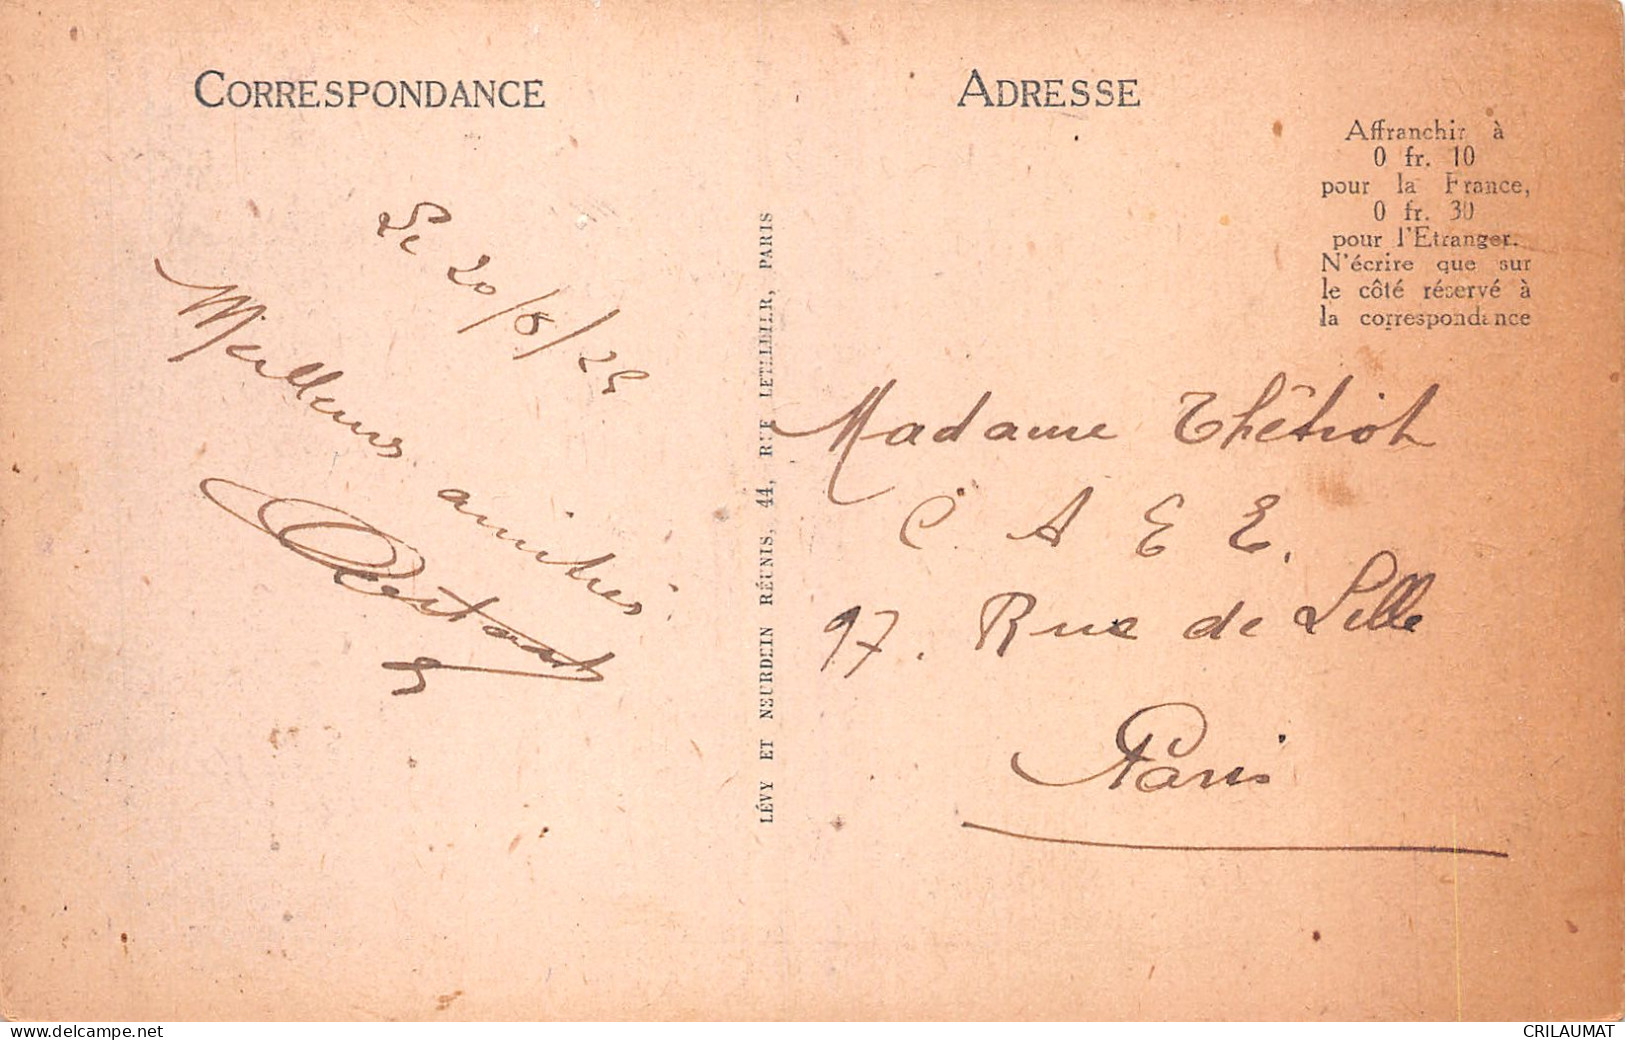 CORRESPONDANCE
Le 20/8/25
Meilleures
amitiés
ADRESSE
Affranchir à
0 fr. 10
pour la France,
0 fr. 30
pour l'Etranger.
N'écrire que sur
le côté réservé à
la correspondance
LÉVY ET NEURDEIN RÉUNIS, 44, RUE LETELLIER, PARIS
Madame Thétiot
C A E E.
97. Rue de Lille
Paris
www.delcampe.net
CRILAUMAT